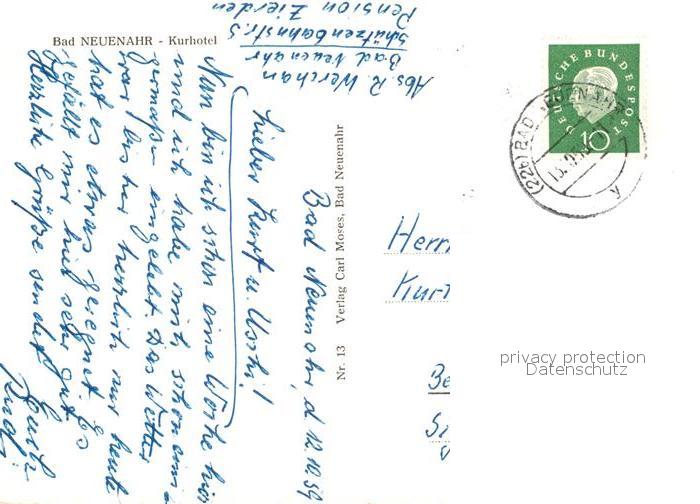 Bad NEUENAHR - Kurhotel
Abs. R. Werchan
Bad Neuenahr
Schützenbahnstr. 5
Pension Zierden
Bad Neuenahr, d. 12.10.59
Lieber Kurt u. Uschi!
Nun bin ich schon eine Woche hier
und ich habe mich schon
eingelebt. Das Wetter
war bis her herrlich nur heute
hat es etwas geregnet. Es
gefällt mir hier sehr gut.
Herzliche Grüße sendet Euch
Rudi
Nr. 13 Verlag Carl Moses, Bad Neuenahr
DEUTSCHE BUNDESPOST
10
(22b) BAD NEUENAHR
y
Herrn
Kurt
privacy protection
Datenschutz